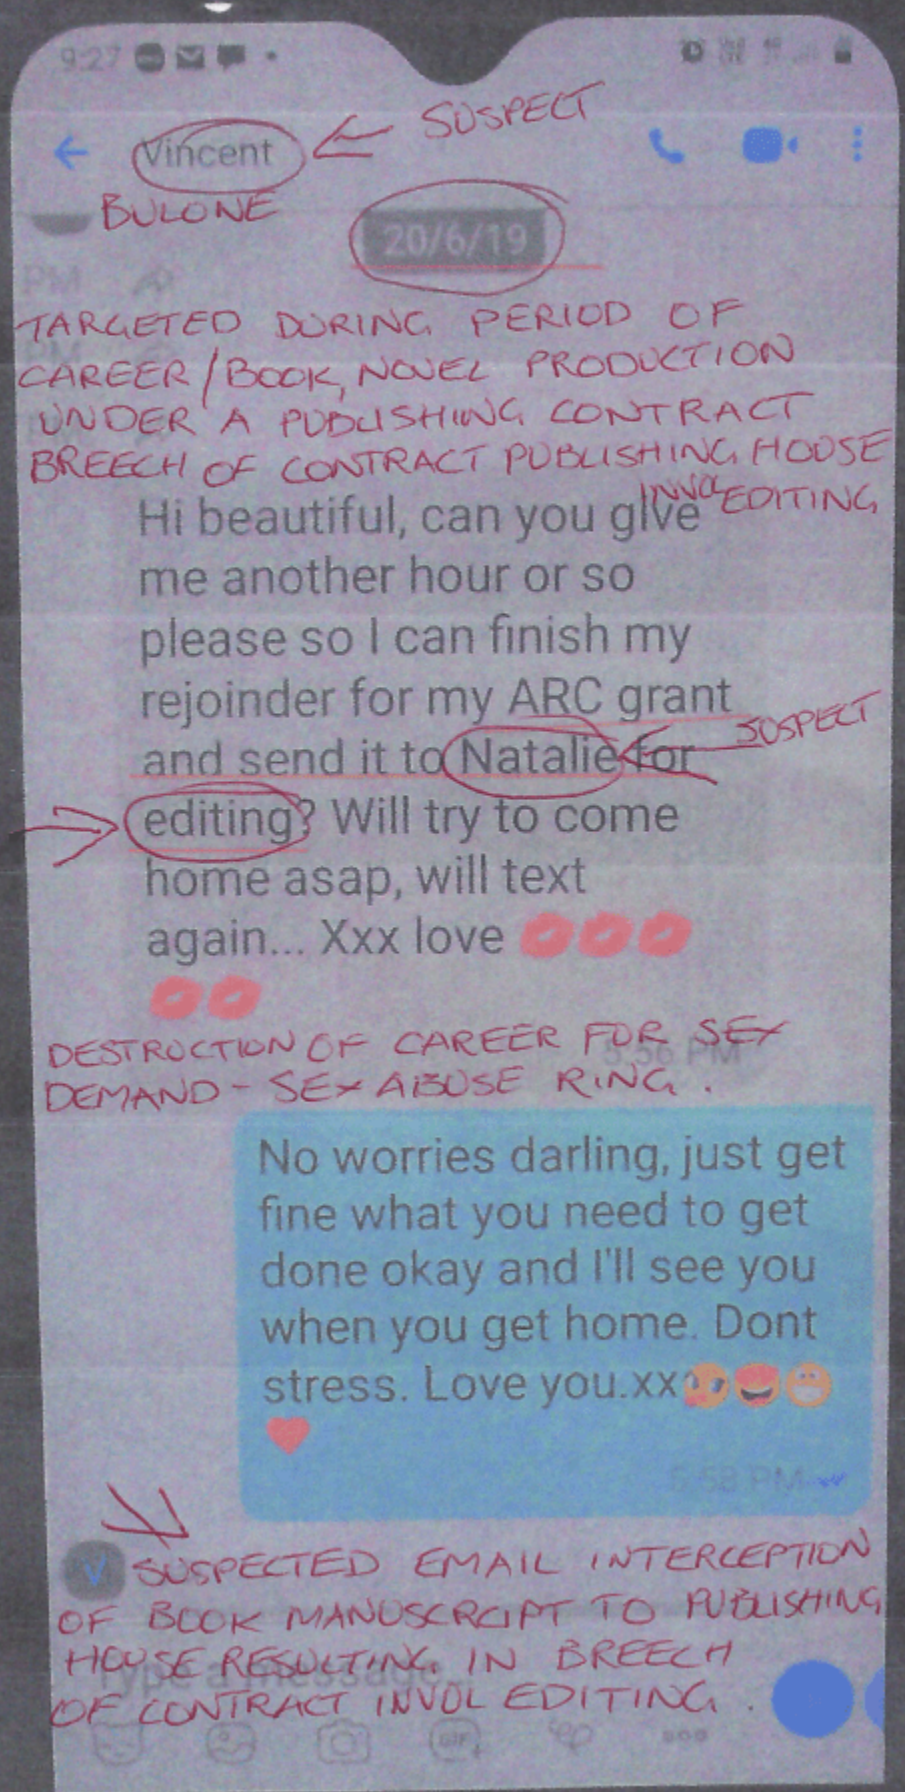 9:27
SUSPECT
Vincent
BULONE
20/6/19
PM
TARGETED DURING PERIOD OF
PM
CAREER/BOOK, NOVEL PRODUCTION
UNDER A PUBLISHING CONTRACT
BREECH OF CONTRACT PUBLISHING HOUSE
INVOL EDITING
Hi beautiful, can you give
me another hour or so
please so I can finish my
rejoinder for my ARC grant
SUSPECT
and send it to Natalie for
editing? Will try to come
home asap, will text
again... Xxx love 💋💋💋
💋💋
5:56 PM
DESTRUCTION OF CAREER FOR SEX
DEMAND - SEX ABUSE RING.
No worries darling, just get
fine what you need to get
done okay and I'll see you
when you get home. Dont
stress. Love you.xx
❤
5:58 PM
V
SUSPECTED EMAIL INTERCEPTION
OF BOOK MANUSCRCIPT TO PUBLISHING
HOUSE RESULTING IN BREECH
Type a message...
OF CONTRACT INVOL EDITING.
GIF